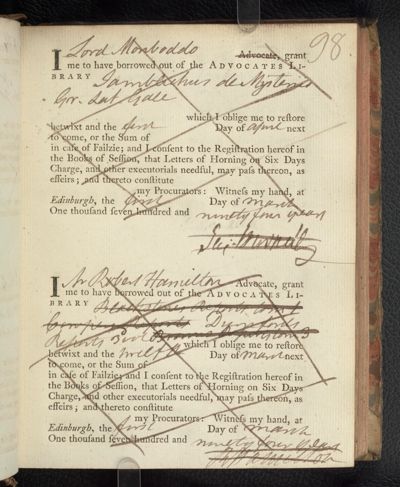 98
I Lord Monboddo Advocate, grant
me to have borrowed out of the ADVOCATES LI-
BRARY Iamblichus de Mysteriis
Gr. Lat Gale
which I oblige me to reſtore
betwixt and the first Day of April next
to come, or the Sum of
in caſe of Failzie; and I conſent to the Regiſtration hereof in
the Books of Seſſion, that Letters of Horning on Six Days
Charge, and other executorials needful, may paſs thereon, as
effeirs; and thereto conſtitute
my Procurators: Witneſs my hand, at
Edinburgh, the first Day of March
One thouſand ſeven hundred and ninety four years
I Mr Robert Hamilton Advocate, grant
me to have borrowed out of the ADVOCATES LI-
BRARY
Reports which I oblige me to reſtore
betwixt and the twelfth Day of March next
to come, or the Sum of
in caſe of Failzie; and I conſent to the Regiſtration hereof in
the Books of Seſſion, that Letters of Horning on Six Days
Charge, and other executorials needful, may paſs thereon, as
effeirs; and thereto conſtitute
my Procurators: Witneſs my hand, at
Edinburgh, the first Day of March
One thouſand ſeven hundred and ninety four years